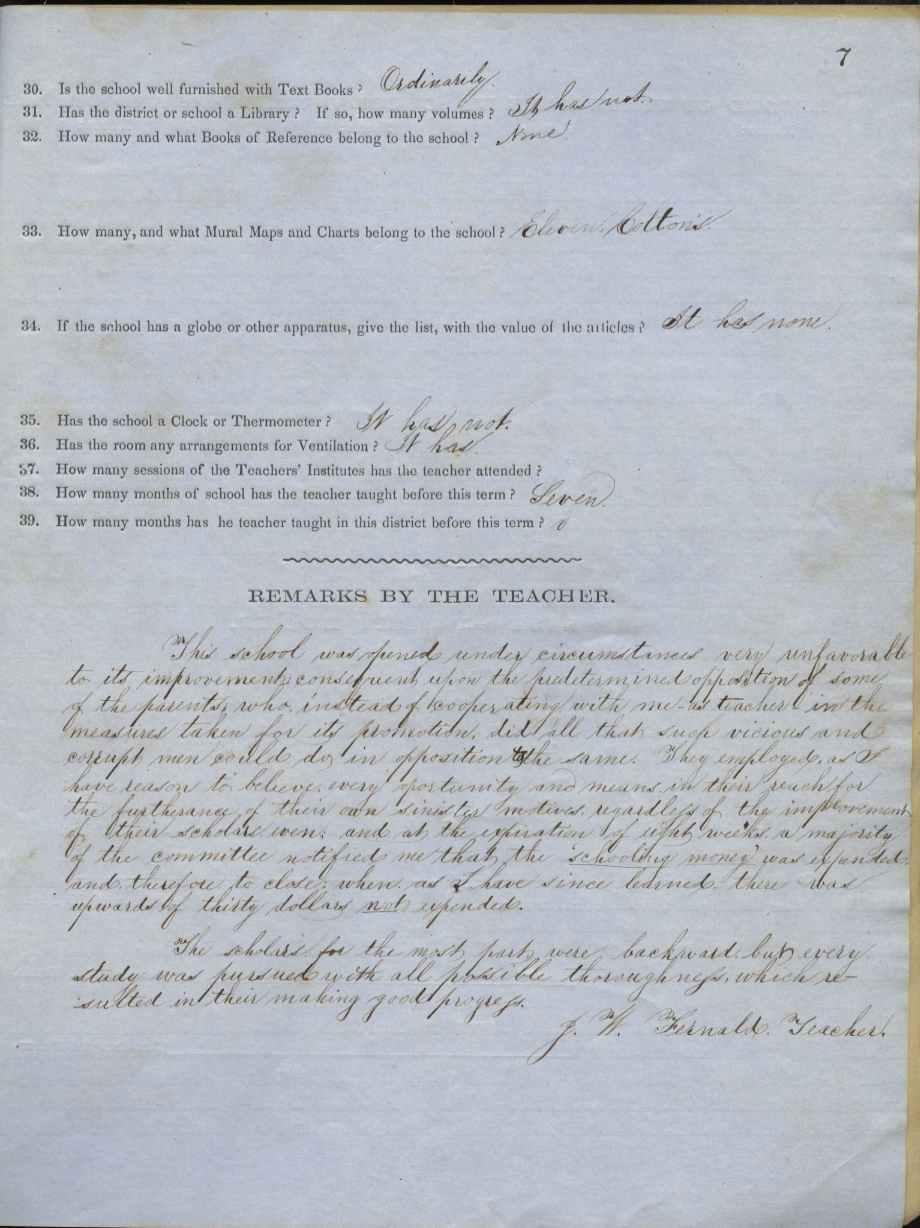 7
30. Is the school well furnished with Text Books? Ordinarily
31. Has the district or school a Library? If so, how many volumes? It has not.
32. How many and what Books of Reference belong to the school? None.
33. How many, and what Mural Maps and Charts belong to the school? Eleven. Colton's.
34. If the school has a globe or other apparatus, give the list, with the value of the articles? It has none.
35. Has the school a Clock or Thermometer? It has not.
36. Has the room any arrangements for Ventilation? It has.
37. How many sessions of the Teachers' Institutes has the teacher attended?
38. How many months of school has the teacher taught before this term? Seven.
39. How many months has he teacher taught in this district before this term? 0
REMARKS BY THE TEACHER.
This school was opened under circumstances very unfavorable
to its improvement; consequent upon the predetermined opposition of some
of the parents, who, instead of cooperating with me - as teacher - in the
measures taken for its promotion, did all that such vicious and
corrupt men could do, in opposition to the same. They employed, as I
have reason to believe, every oportunity and means in their reach for
the furtherance of their own sinister motives, regardless of the improvement
of their scholars even; and at the expiration of eight weeks, a majority
of the committee notified me that the "schooling money" was expended,
and therefore to close; when, as I have since learned, there was
upwards of thirty dollars not expended.
The scholars, for the most part, were backward, but every
study was pursued with all possible thoroughness, which re-
sulted in their making good progress.
J. W. Fernald. Teacher.